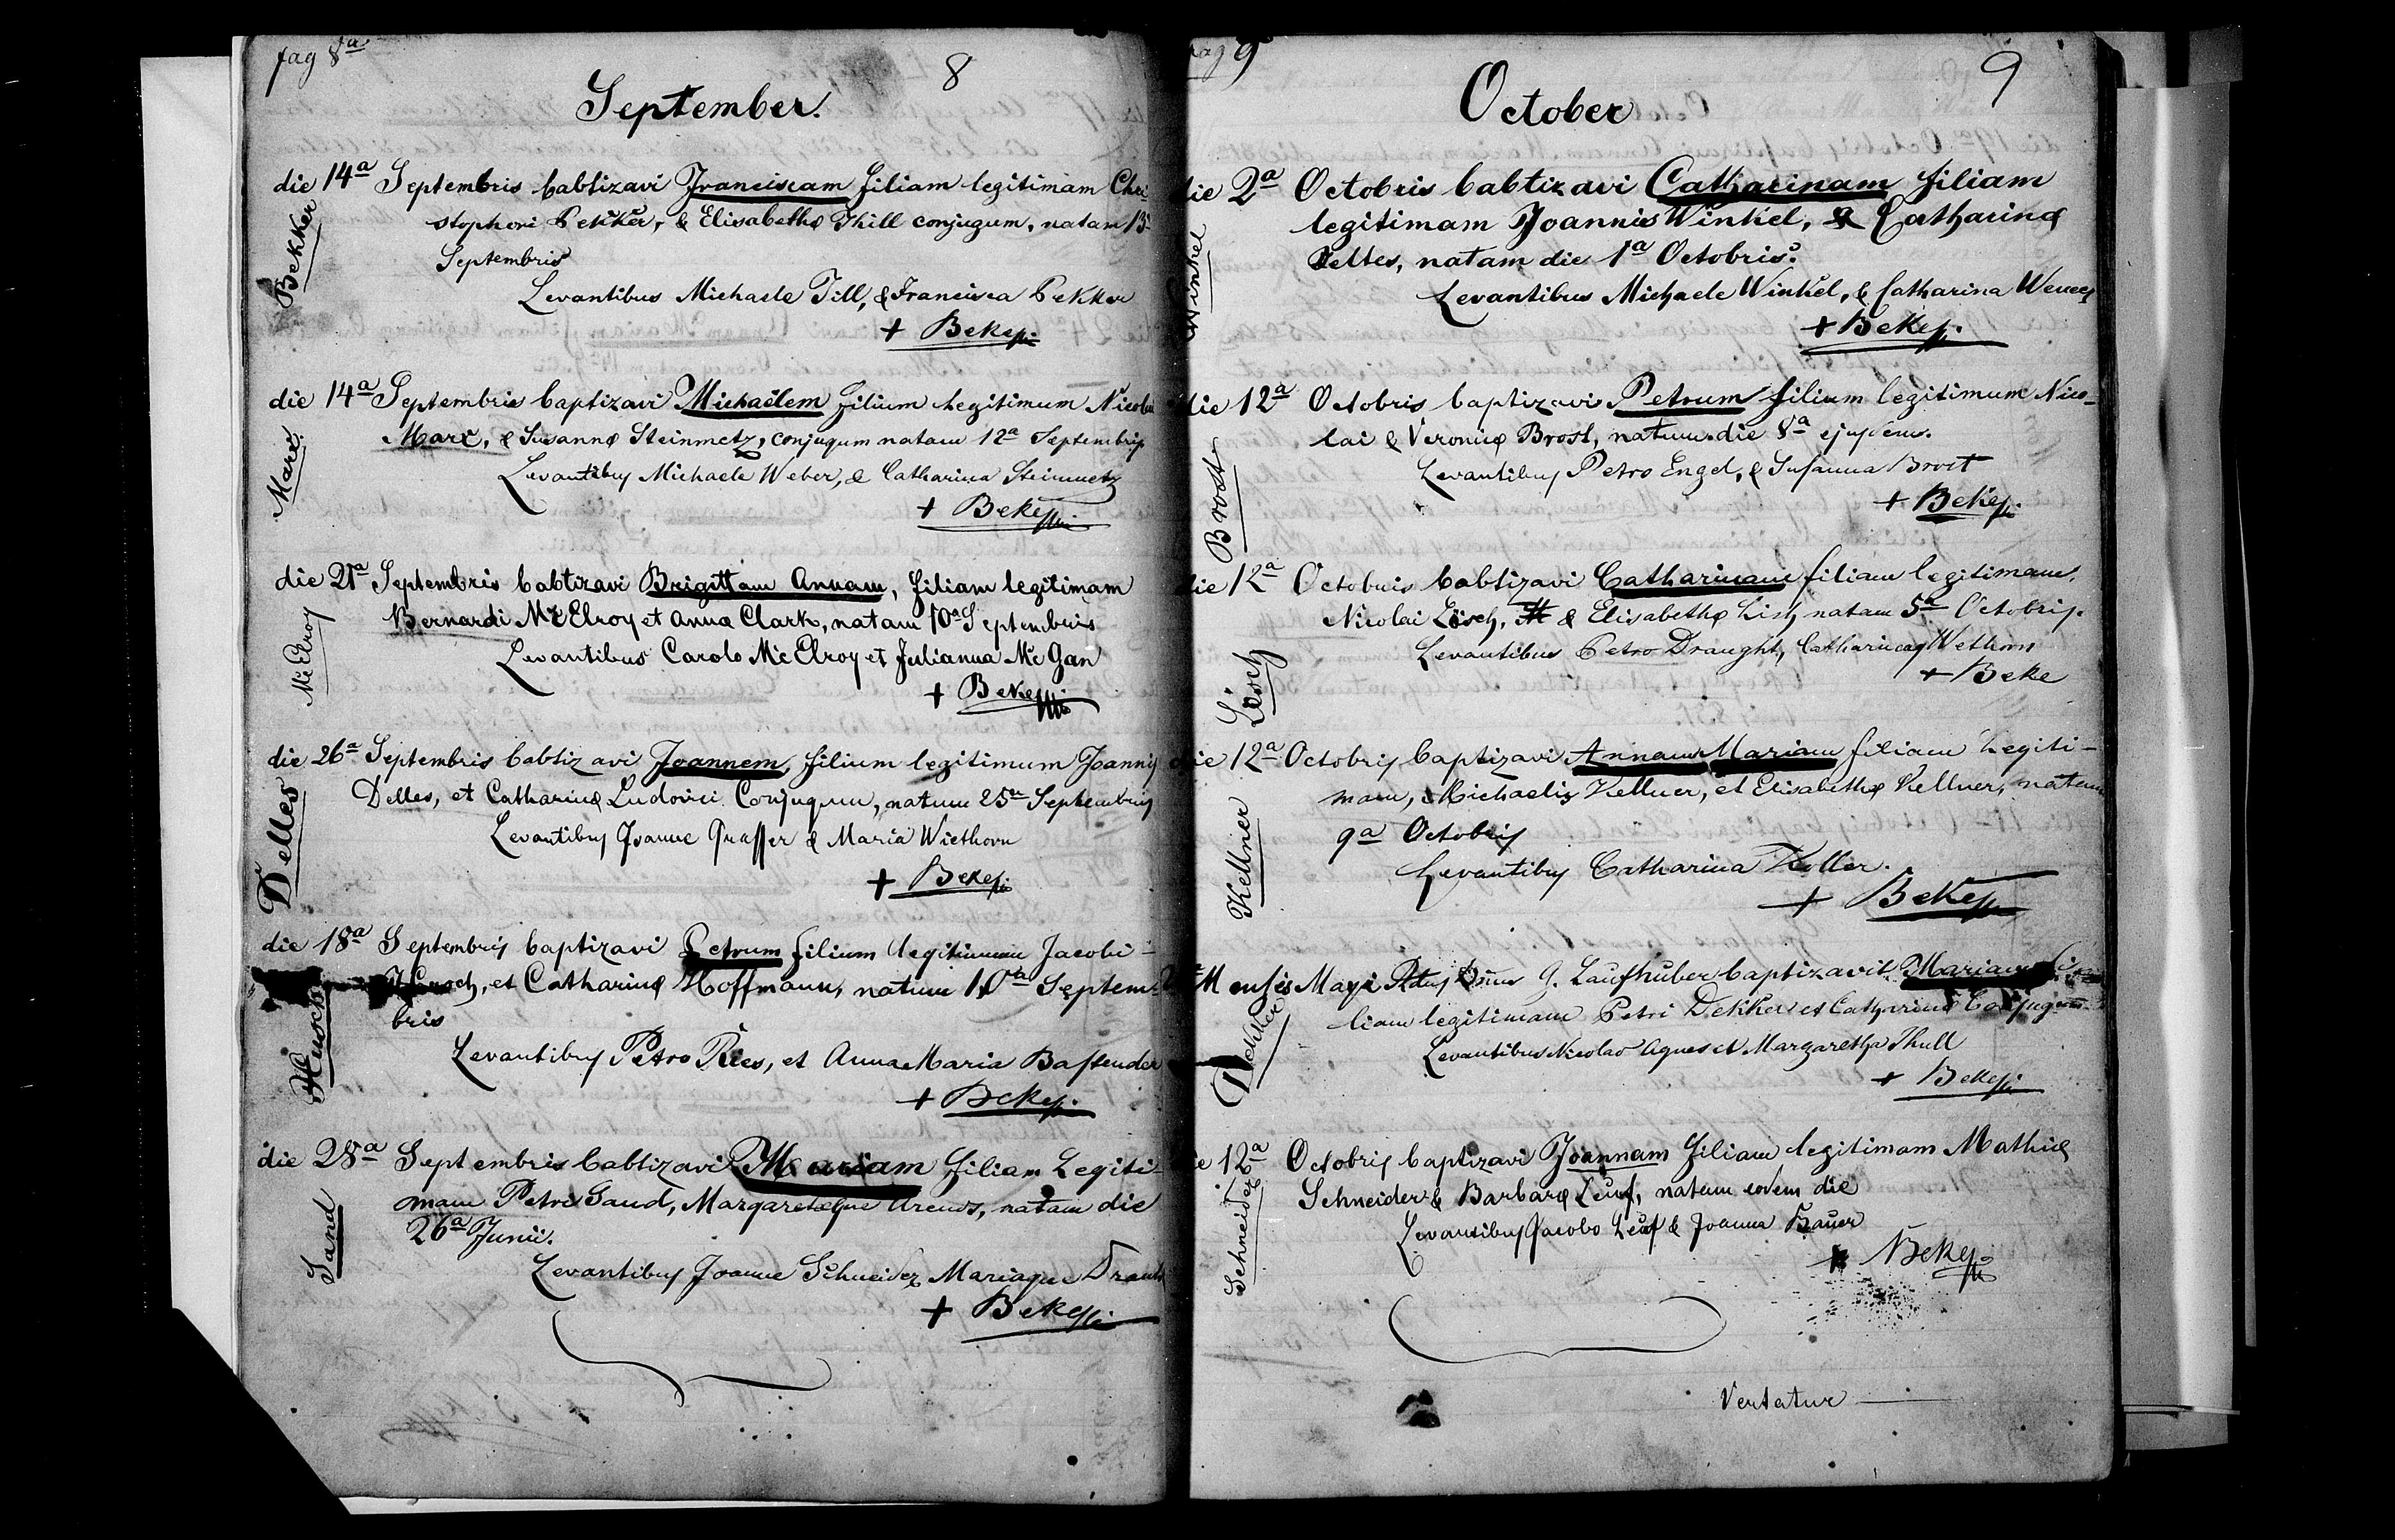 pag 8a
8
September.
die 14a Septembris babtizavi Franciscam filiam legitimam Chri-
stophori Bekker, & Elisabethæ Thill conjugum, natam 13
Septembris
Levantibus Michaele Till, & Francisca Bekker
+ Beke
Bekker
die 14a Septembris baptizavi Michaëlem filium legitimum Nicolai
Marx, & Susannæ Steinmetz, conjugum natum 12a Septembris
Levantibus Michaele Weber, & Catharina Steinmetz
+ Beke
Marx
die 21a Septembris babtizavi Brigittam Annam, filiam legitimam
Bernardi Mc Elroy et Anna Clark, natam 10a Septembris
Levantibus Carolo Mc Elroy et Julianna Mc Gan
+ Beke
Mc Elroy
die 26a Septembris babtizavi Joannem, filium legitimum Joannis
Delles, et Catharinæ Ludovici Conjugum, natum 25a Septembris
Levantibus Joanne Grasser & Maria Wiethorn
+ Beke
Delles
die 18a Septembris baptizavi Petrum filium legitimum Jacobi
et Catharinæ Hoffmann, natum 10a Septem-
bris
Levantibus Petro Ries, et Anna Maria Bastender
+ Beke
die 28a Septembris babtizavi Mariam filiam Legiti-
mam Petri Sand, Margaretæque Arens, natam die
26a Junii.
Levantibus Joanne Schneider Mariaque
+ Beke
Sand
pag 9
9
October
die 2a Octobris babtizavi Catharinam filiam
legitimam Joannis Winkel, & Catharinæ
Velles, natam die 1a Octobris.
Levantibus Michaele Winkel, & Catharina
+ Beke
Winkel
die 12a Octobris baptizavi Petrum filium legitimum Nico-
lai & Veronicæ Brost, natum die 8a ejusdem.
Levantibus Petro Engel, & Susanna Brost
+ Beke
Brost
die 12a Octobris babtizavi Catharinam filiam legitimam,
Nicolai Lösch, & Elisabethæ Lish natam 5a Octobris.
Levantibus Petro Draught, Catharina Wethorn
+ Beke
Lösch
die 12a Octobris baptizavi Annam Mariam filiam legiti-
mam, Michaelis Kellner, et Elisabethæ Kellner, natam
9a Octobris
Levantibus Catharina Koller.
+ Beke
Kellner
Mensis Maji G. Laufhuber baptizavit Mariam fi-
liam legitimam Petri Dekker et Catharinæ Conjugum
Levantibus Nicolao Agnes et Margaretha Thull
+ Beke
Dekker
die 12a Octobris baptizavi Joannam filiam legitimam Mathiæ
Schneider & Barbaræ Leuf, natam eodem die
Levantibus Jacobo Leuf & Joanna Bauer
+ Beke
Schneider
Vertatur